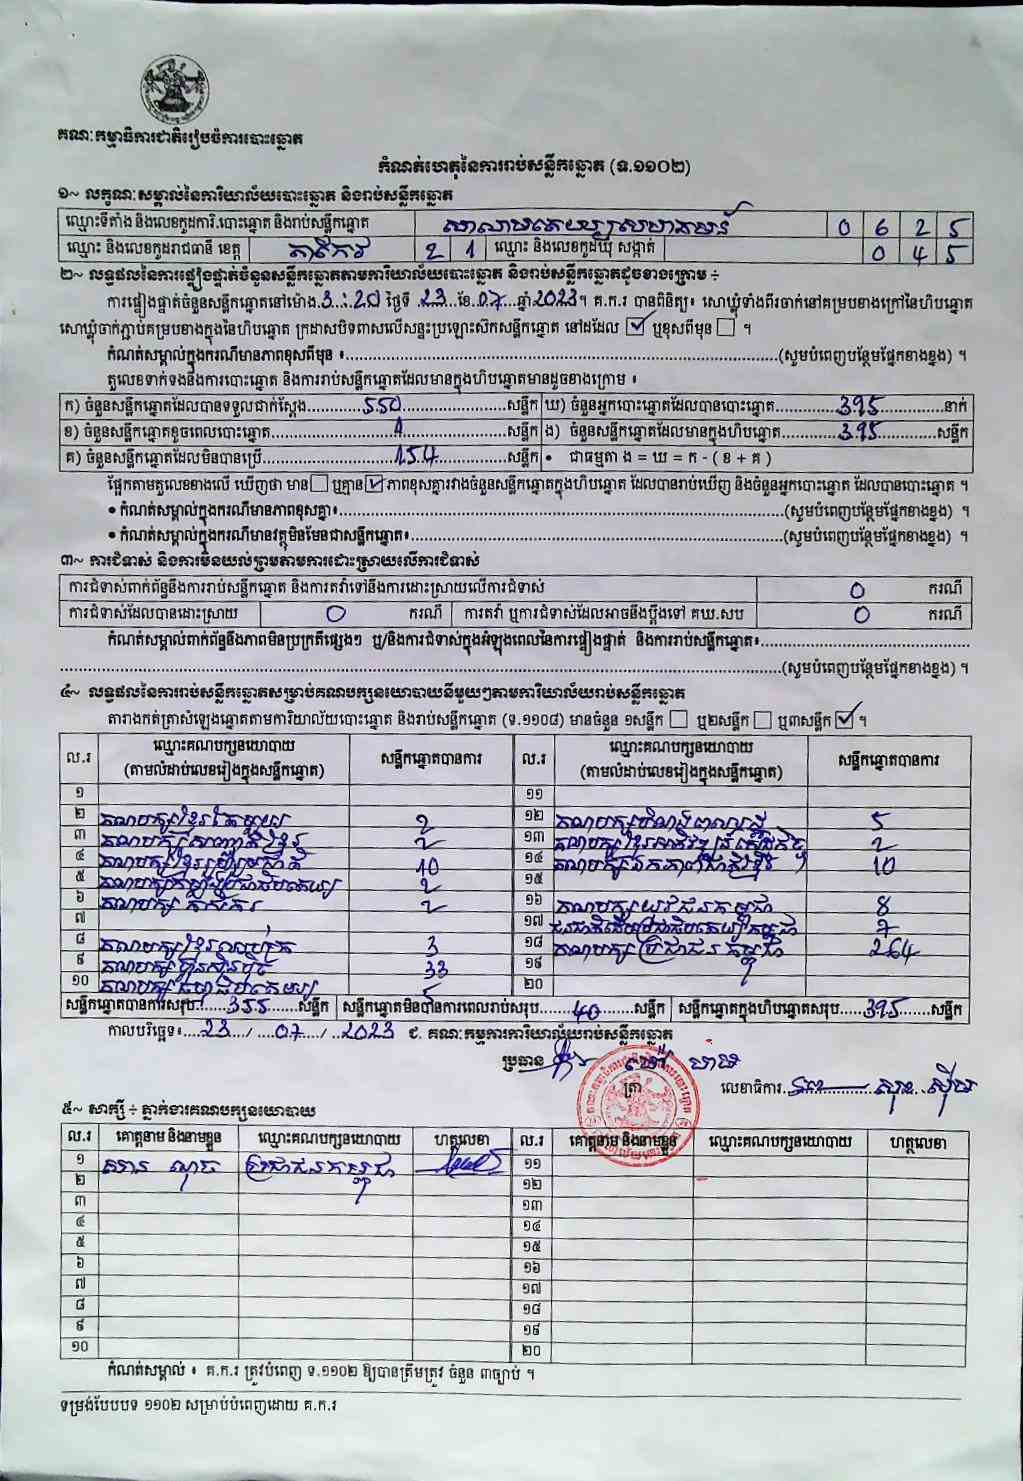 គណៈកម្មាធិការជាតិរៀបចំការបោះឆ្នោត
កំណត់ហេតុនៃការរាប់សន្លឹកឆ្នោត (ទ.១១០២)
១~ លក្ខណៈសម្គាល់នៃការិយាល័យបោះឆ្នោត និងរាប់សន្លឹកឆ្នោត
ឈ្មោះទីតាំង និងលេខកូដការិ.បោះឆ្នោត និងរាប់សន្លឹកឆ្នោត 0 6 2 5
ឈ្មោះ និងលេខកូដរាជធានី ខេត្ត តាកែវ 2 1 ឈ្មោះ និងលេខកូដឃុំ សង្កាត់ 0 4 5
២~ លទ្ធផលនៃការផ្ទៀងផ្ទាត់ចំនួនសន្លឹកឆ្នោតតាមការិយាល័យបោះឆ្នោត និងរាប់សន្លឹកឆ្នោតដូចខាងក្រោម ÷
ការផ្ទៀងផ្ទាត់ចំនួនសន្លឹកឆ្នោតនៅម៉ោង 3:20 ថ្ងៃទី 23 ខែ 07 ឆ្នាំ 2023 ។ គ.ក.រ បានពិនិត្យ៖ សោឃ្លុំទាំងពីរចាក់នៅគម្របខាងក្រៅនៃហិបឆ្នោត
សោឃ្លុំចាក់ភ្ជាប់គម្របខាងក្នុងនៃហិបឆ្នោត ក្រដាសបិទពាសលើសន្ទះប្រឡោះស៊កសន្លឹកឆ្នោត នៅដដែល ☑ ឬខុសពីមុន ☐ ។
កំណត់សម្គាល់ក្នុងករណីមានភាពខុសពីមុន ៖ (សូមបំពេញបន្ថែមផ្នែកខាងខ្នង) ។
តួលេខទាក់ទងនឹងការបោះឆ្នោត និងការរាប់សន្លឹកឆ្នោតដែលមានក្នុងហិបឆ្នោតមានដូចខាងក្រោម ៖
ក) ចំនួនសន្លឹកឆ្នោតដែលបានទទួលជាក់ស្តែង 550 សន្លឹក ឃ) ចំនួនអ្នកបោះឆ្នោតដែលបានបោះឆ្នោត 395 នាក់
ខ) ចំនួនសន្លឹកឆ្នោតខូចពេលបោះឆ្នោត 1 សន្លឹក ង) ចំនួនសន្លឹកឆ្នោតដែលមានក្នុងហិបឆ្នោត 395 សន្លឹក
គ) ចំនួនសន្លឹកឆ្នោតដែលមិនបានប្រើ 154 សន្លឹក • ជាធម្មតា ង = ឃ = ក - ( ខ + គ )
ផ្អែកតាមតួលេខខាងលើ ឃើញថា មាន ☐ ឬគ្មាន ☑ ភាពខុសគ្នារវាងចំនួនសន្លឹកឆ្នោតក្នុងហិបឆ្នោត ដែលបានរាប់ឃើញ និងចំនួនអ្នកបោះឆ្នោត ដែលបានបោះឆ្នោត ។
• កំណត់សម្គាល់ក្នុងករណីមានភាពខុសគ្នា៖ (សូមបំពេញបន្ថែមផ្នែកខាងខ្នង) ។
• កំណត់សម្គាល់ក្នុងករណីមានវត្ថុមិនមែនជាសន្លឹកឆ្នោត៖ (សូមបំពេញបន្ថែមផ្នែកខាងខ្នង) ។
៣~ ការជំទាស់ និងការមិនយល់ព្រមតាមការដោះស្រាយលើការជំទាស់
ការជំទាស់ពាក់ព័ន្ធនឹងការរាប់សន្លឹកឆ្នោត និងការតវ៉ាទៅនឹងការដោះស្រាយលើការជំទាស់ 0 ករណី
ការជំទាស់ដែលបានដោះស្រាយ 0 ករណី ការតវ៉ា ឬការជំទាស់ដែលអាចនឹងប្តឹងទៅ គឃ.សប 0 ករណី
កំណត់សម្គាល់ពាក់ព័ន្ធនឹងភាពមិនប្រក្រតីផ្សេងៗ ឬ/និងការជំទាស់ក្នុងអំឡុងពេលនៃការផ្ទៀងផ្ទាត់ និងការរាប់សន្លឹកឆ្នោត៖
(សូមបំពេញបន្ថែមផ្នែកខាងខ្នង) ។
៤~ លទ្ធផលនៃការរាប់សន្លឹកឆ្នោតសម្រាប់គណបក្សនយោបាយនីមួយៗតាមការិយាល័យរាប់សន្លឹកឆ្នោត
តារាងកត់ត្រាសំឡេងឆ្នោតតាមការិយាល័យបោះឆ្នោត និងរាប់សន្លឹកឆ្នោត (ទ.១១០៨) មានចំនួន ១សន្លឹក ☐ ឬ២សន្លឹក ☐ ឬ៣សន្លឹក ☑ ។
ល.រ ឈ្មោះគណបក្សនយោបាយ (តាមលំដាប់លេខរៀងក្នុងសន្លឹកឆ្នោត) សន្លឹកឆ្នោតបានការ ល.រ ឈ្មោះគណបក្សនយោបាយ (តាមលំដាប់លេខរៀងក្នុងសន្លឹកឆ្នោត) សន្លឹកឆ្នោតបានការ
១ ១១
២ 2 ១២ 5
៣ គណបក្សសញ្ជាតិខ្មែរ 2 ១៣ គណបក្សខ្មែរអភិវឌ្ឍន៍សេដ្ឋកិច្ច 2
៤ គណបក្សខ្មែររួបរួមជាតិ 10 ១៤ គណបក្សឯកភាពជាតិខ្មែរ 10
៥ 2 ១៥
៦ គណបក្ស កសិករ 2 ១៦ គណបក្សយុវជនកម្ពុជា 8
៧ ១៧ 7
៨ គណបក្សខ្មែរឈប់ក្រ 3 ១៨ គណបក្សប្រជាជនកម្ពុជា 264
៩ គណបក្សហ៊្វុនស៊ិនប៉ិច 33 ១៩
១០ 5 ២០
សន្លឹកឆ្នោតបានការសរុប 355 សន្លឹក សន្លឹកឆ្នោតមិនបានការពេលរាប់សរុប 40 សន្លឹក សន្លឹកឆ្នោតក្នុងហិបឆ្នោតសរុប 395 សន្លឹក
កាលបរិច្ឆេទ៖ 23 / 07 / 2023 ជ. គណៈកម្មការការិយាល័យរាប់សន្លឹកឆ្នោត
ប្រធាន
ត្រា លេខាធិការ
៥~ សាក្សី ÷ ភ្នាក់ងារគណបក្សនយោបាយ
ល.រ គោត្តនាម និងនាមខ្លួន ឈ្មោះគណបក្សនយោបាយ ហត្ថលេខា ល.រ គោត្តនាម និងនាមខ្លួន ឈ្មោះគណបក្សនយោបាយ ហត្ថលេខា
១ ប្រជាជនកម្ពុជា ១១
២ ១២
៣ ១៣
៤ ១៤
៥ ១៥
៦ ១៦
៧ ១៧
៨ ១៨
៩ ១៩
១០ ២០
កំណត់សម្គាល់ ៖ គ.ក.រ ត្រូវបំពេញ ទ.១១០២ ឱ្យបានត្រឹមត្រូវ ចំនួន ៣ច្បាប់ ។
ទម្រង់បែបបទ ១១០២ សម្រាប់បំពេញដោយ គ.ក.រ